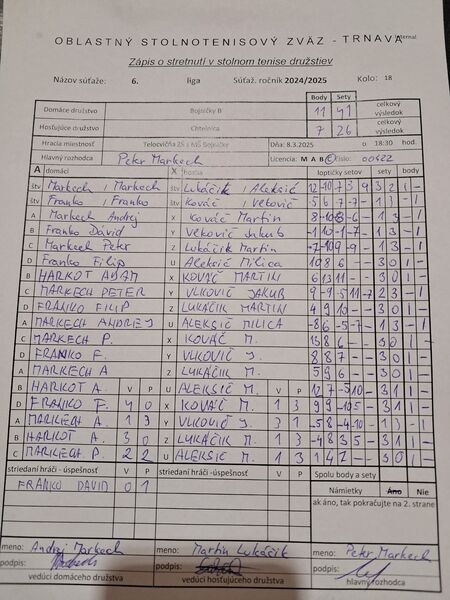 OBLASTNÝ STOLNOTENISOVÝ ZVÄZ - TRNAVA
Internal
Zápis o stretnutí v stolnom tenise družstiev
Názov súťaže: 6. liga Súťaž. ročník 2024/2025 Kolo: 18
Body Sety
Domáce družstvo Bojničky B 11 41 celkový výsledok
Hosťujúce družstvo Chtelnica 7 26 celkový výsledok
Hracia miestnosť Telocvičňa ZŠ s MŠ Bojničky Dňa: 8.3.2025 o 18:30 hod.
Hlavný rozhodca Peter Markech Licencia: M A B C číslo: 00622
A domáci X hostia loptičky setov sety body
štv Markech, Markech štv Lukáčik, Aleksič 12 -10 -7 3 9 3 2 1 -
štv Franko, Franko štv Kováč, Vekovič -5 6 -7 -7 - 1 3 - 1
A Markech Andrej X Kováč Martin
B Franko Dávid Y Vekovič Jakub 1 3 - 1
C Markech Peter Z Lukáčik Martin 1 3 - 1
D Franko Filip U Aleksič Milica 10 8 6 - - 3 0 1 -
B HARKOT ADAM X KOVÁČ MARTIN 6 13 11 - - 3 0 1 -
C MARKECH PETER Y VLKOVIČ JAKUB 9 -9 -5 11 -7 2 3 - 1
D FRANKO FILIP Z LUKÁČIK MARTIN 4 9 10 - - 3 0 1 -
A MARKECH ANDREJ U ALEKSIČ MILICA -8 6 -5 -7 - 1 3 - 1
C MARKECH P. X KOVÁČ M. 13 8 6 - - 3 0 1 -
D FRANKO F. Y VLKOVIČ J. 8 8 7 - - 3 0 1 -
A MARKECH A Z LUKÁČIK M. 5 9 6 - - 3 0 1 -
B HARKOT A. V P U ALEKSIČ M. V P 12 7 -5 10 - 3 1 1 -
D FRANKO F. 4 0 X KOVÁČ M. 1 3 9 9 -10 5 - 3 1 1 -
A MARKECH A. 1 3 Y VLKOVIČ J. 3 1 -5 8 -4 -10 - 1 3 - 1
B HARKOT A. 3 0 Z LUKÁČIK M. 1 3 -4 8 3 5 - 3 1 1 -
C MARKECH P. 2 2 U ALEKSIČ M. 1 3 3 0 1 -
striedaní hráči - úspešnosť V P striedaní hráči - úspešnosť V P Spolu body a sety
FRANKO DAVID 0 1 Námietky Áno Nie
ak áno, tak pokračujte na 2. strane
meno: Andrej Markech meno: Martin Lukáčik meno: Peter Markech
podpis: podpis: podpis:
vedúci domáceho družstva vedúci hosťujúceho družstva hlavný rozhodca